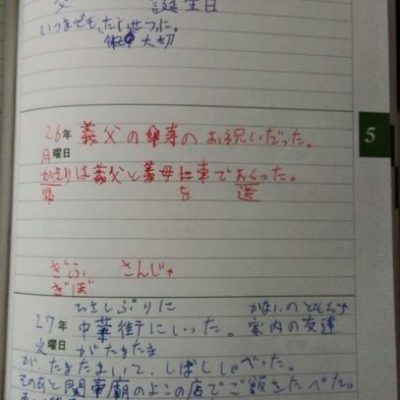 誕生日
いつまでも、たいせつに。
大切
5
26年 義父の傘寿のお祝いだった。
月曜日
かえりは義父と義母に車でおくった。
帰 を 送
ぎふ さんじゅ
ぎぼ
ひさしぶりに かないのともだち
27年 中華街にいった。家内の友達
火曜日 がたまたま
が、たまたまいて、しばししゃべった。
そのあと関帝廟のよこの店でご飯をたべた。